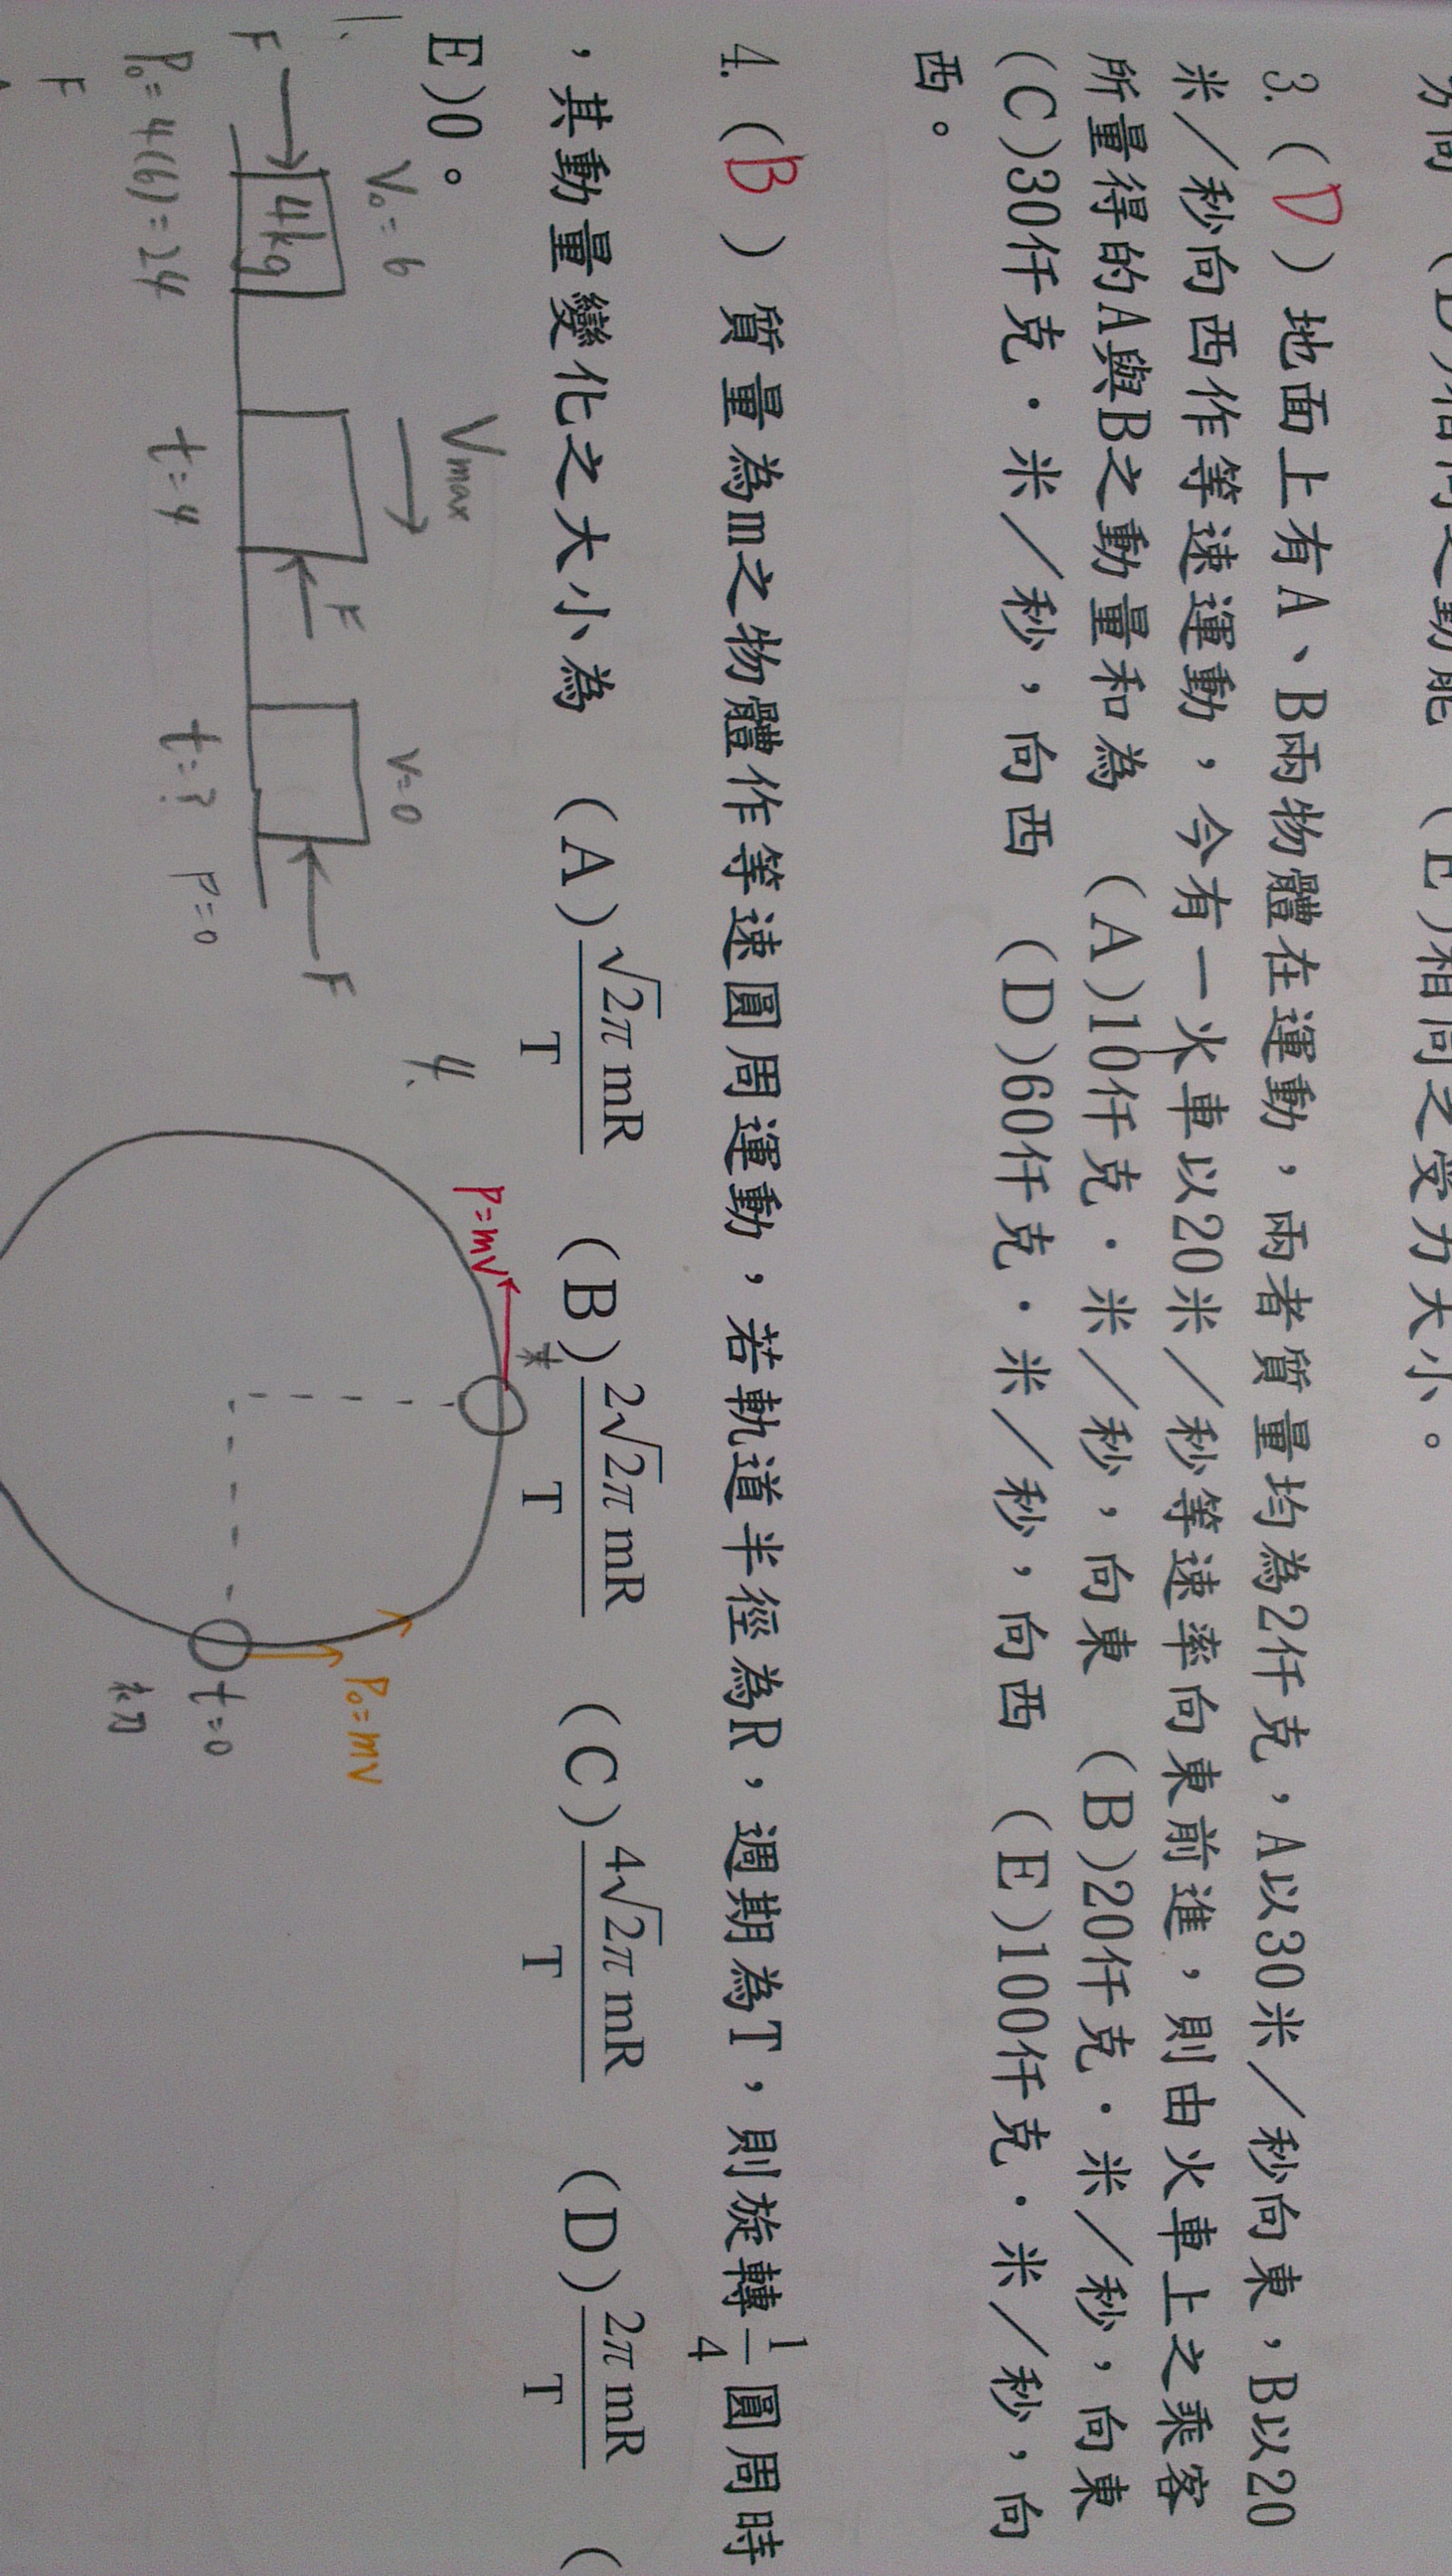 方向 (D)相同之動能 (E)相同之受力大小。
3.(D)地面上有A、B兩物體在運動，兩者質量均為2仟克，A以30米／秒向東，B以20
米／秒向西作等速運動，今有一火車以20米／秒等速率向東前進，則由火車上之乘客
所量得的A與B之動量和為 (A)10仟克．米／秒，向東 (B)20仟克．米／秒，向東
(C)30仟克．米／秒，向西 (D)60仟克．米／秒，向西 (E)100仟克．米／秒，向
西。
4.(B)質量為m之物體作等速圓周運動，若軌道半徑為R，週期為T，則旋轉1/4圓周時
，其動量變化之大小為 (A)√2π mR/T (B)2√2π mR/T (C)4√2π mR/T (D)2π mR/T (
E)0。
1.
V₀=6
Vmax
V=0
F
4kg
F
F
P₀=4(6)=24
t=4
t=?
P=0
F
4.
P=mV
末
P₀=mV
t=0
初